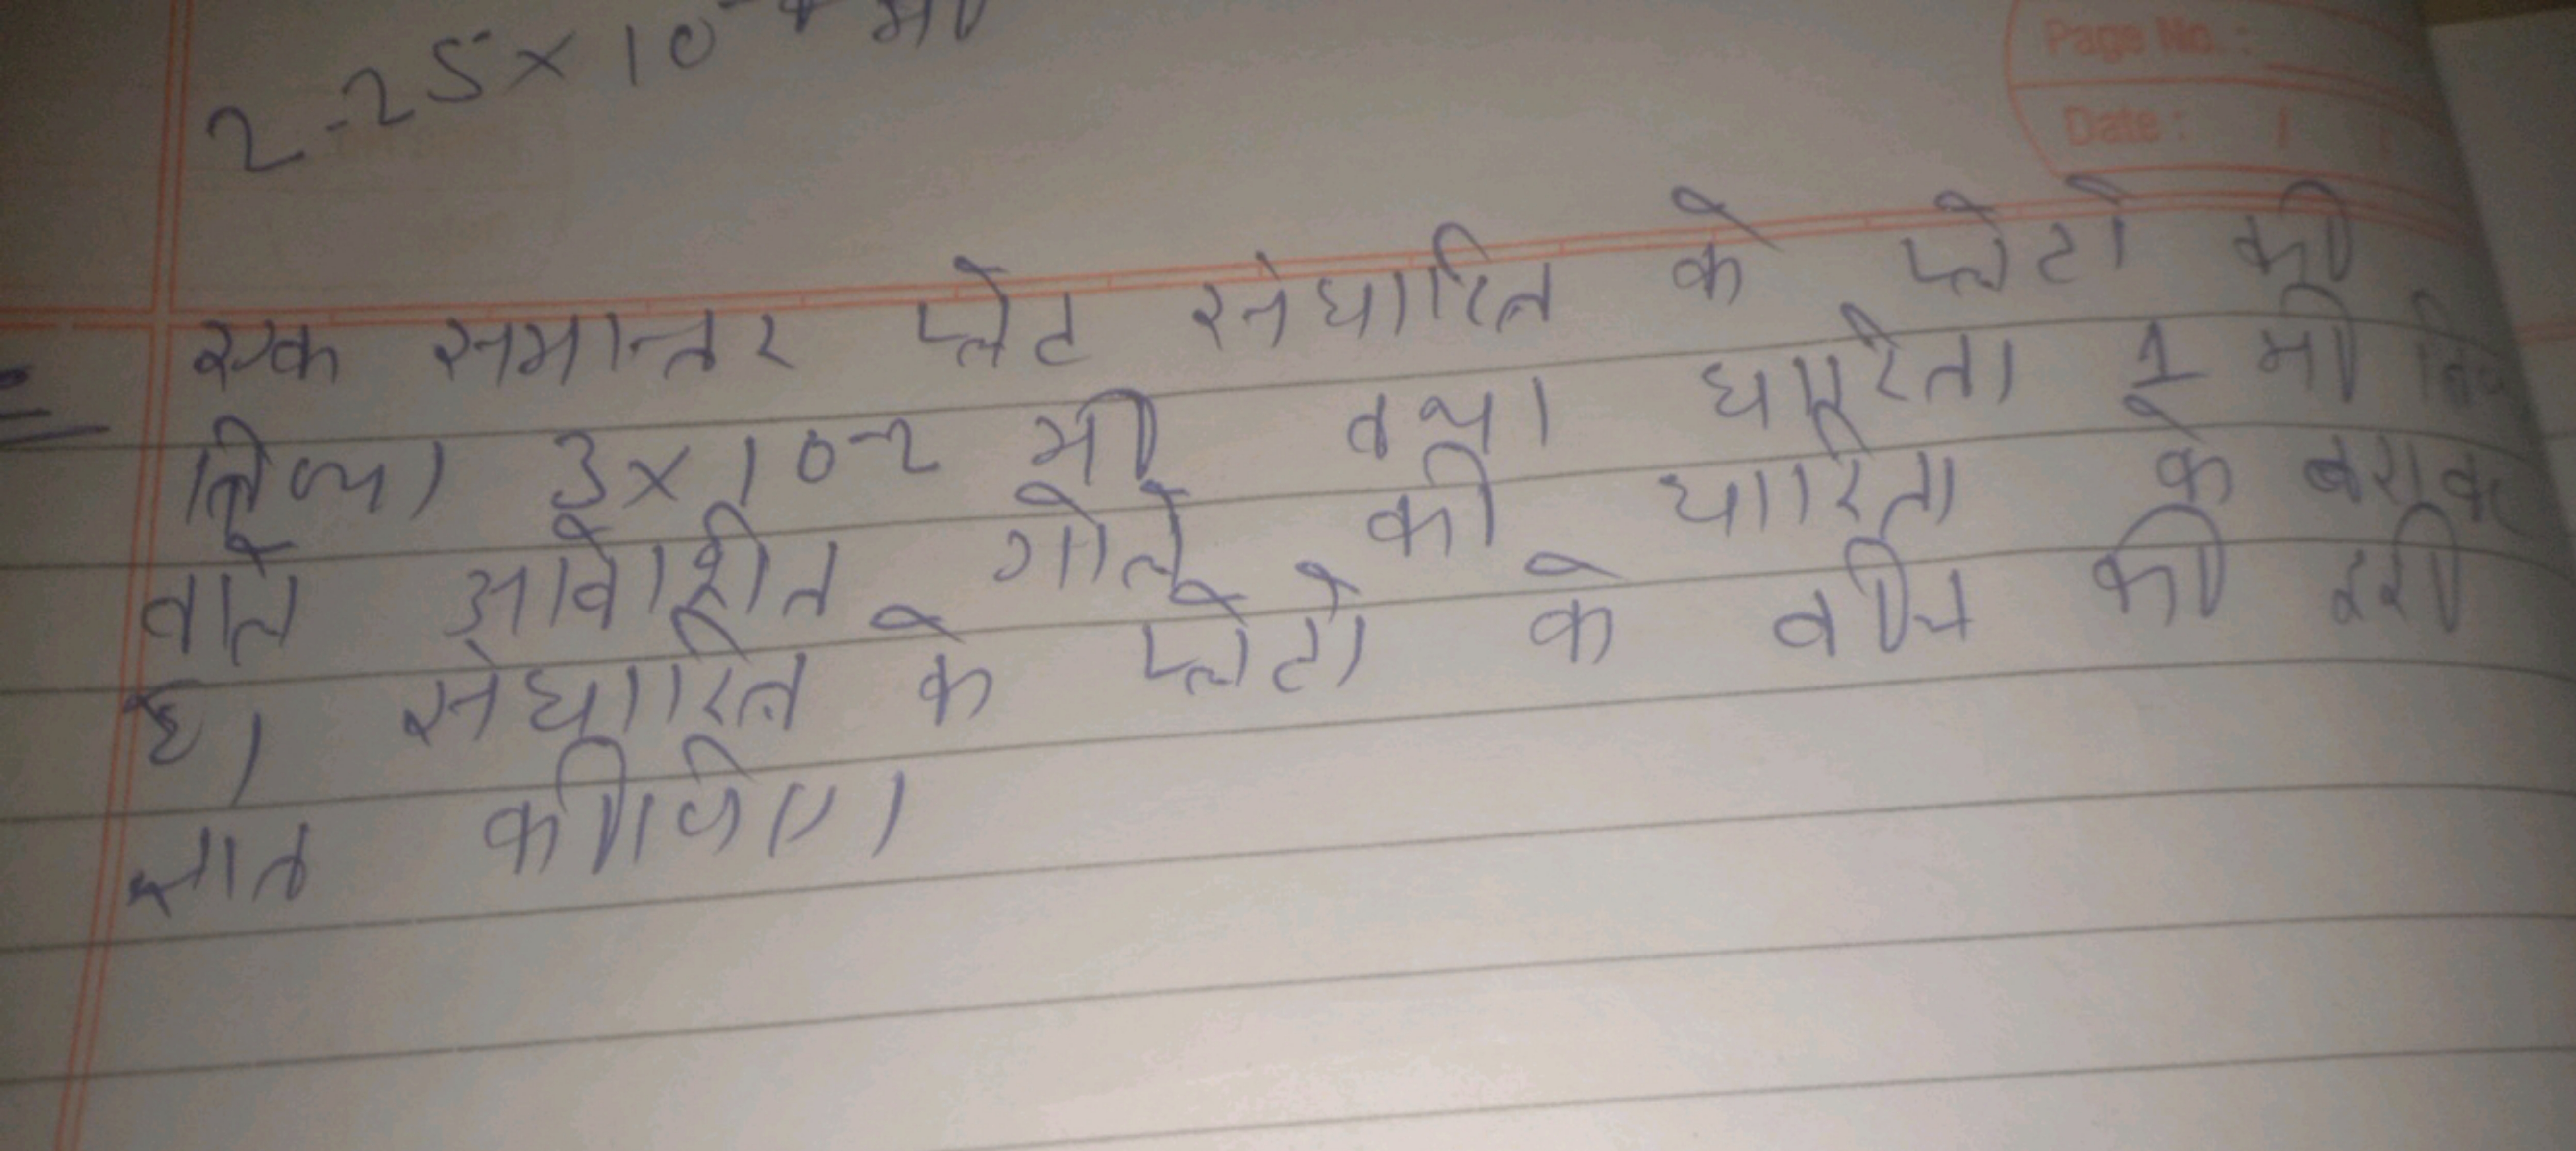 2.25×10⁻⁴ मी
Page No.:
Date: / /
एक समान्तर प्लेट संधारित्र के प्लेटो की
त्रिज्या 3×10⁻² मी तथा धारिता 1 मी
वाले आवेशित गोले की धारिता के बराबर
है। संधारित्र के प्लेटो के बीच की दूरी
ज्ञात कीजिए।